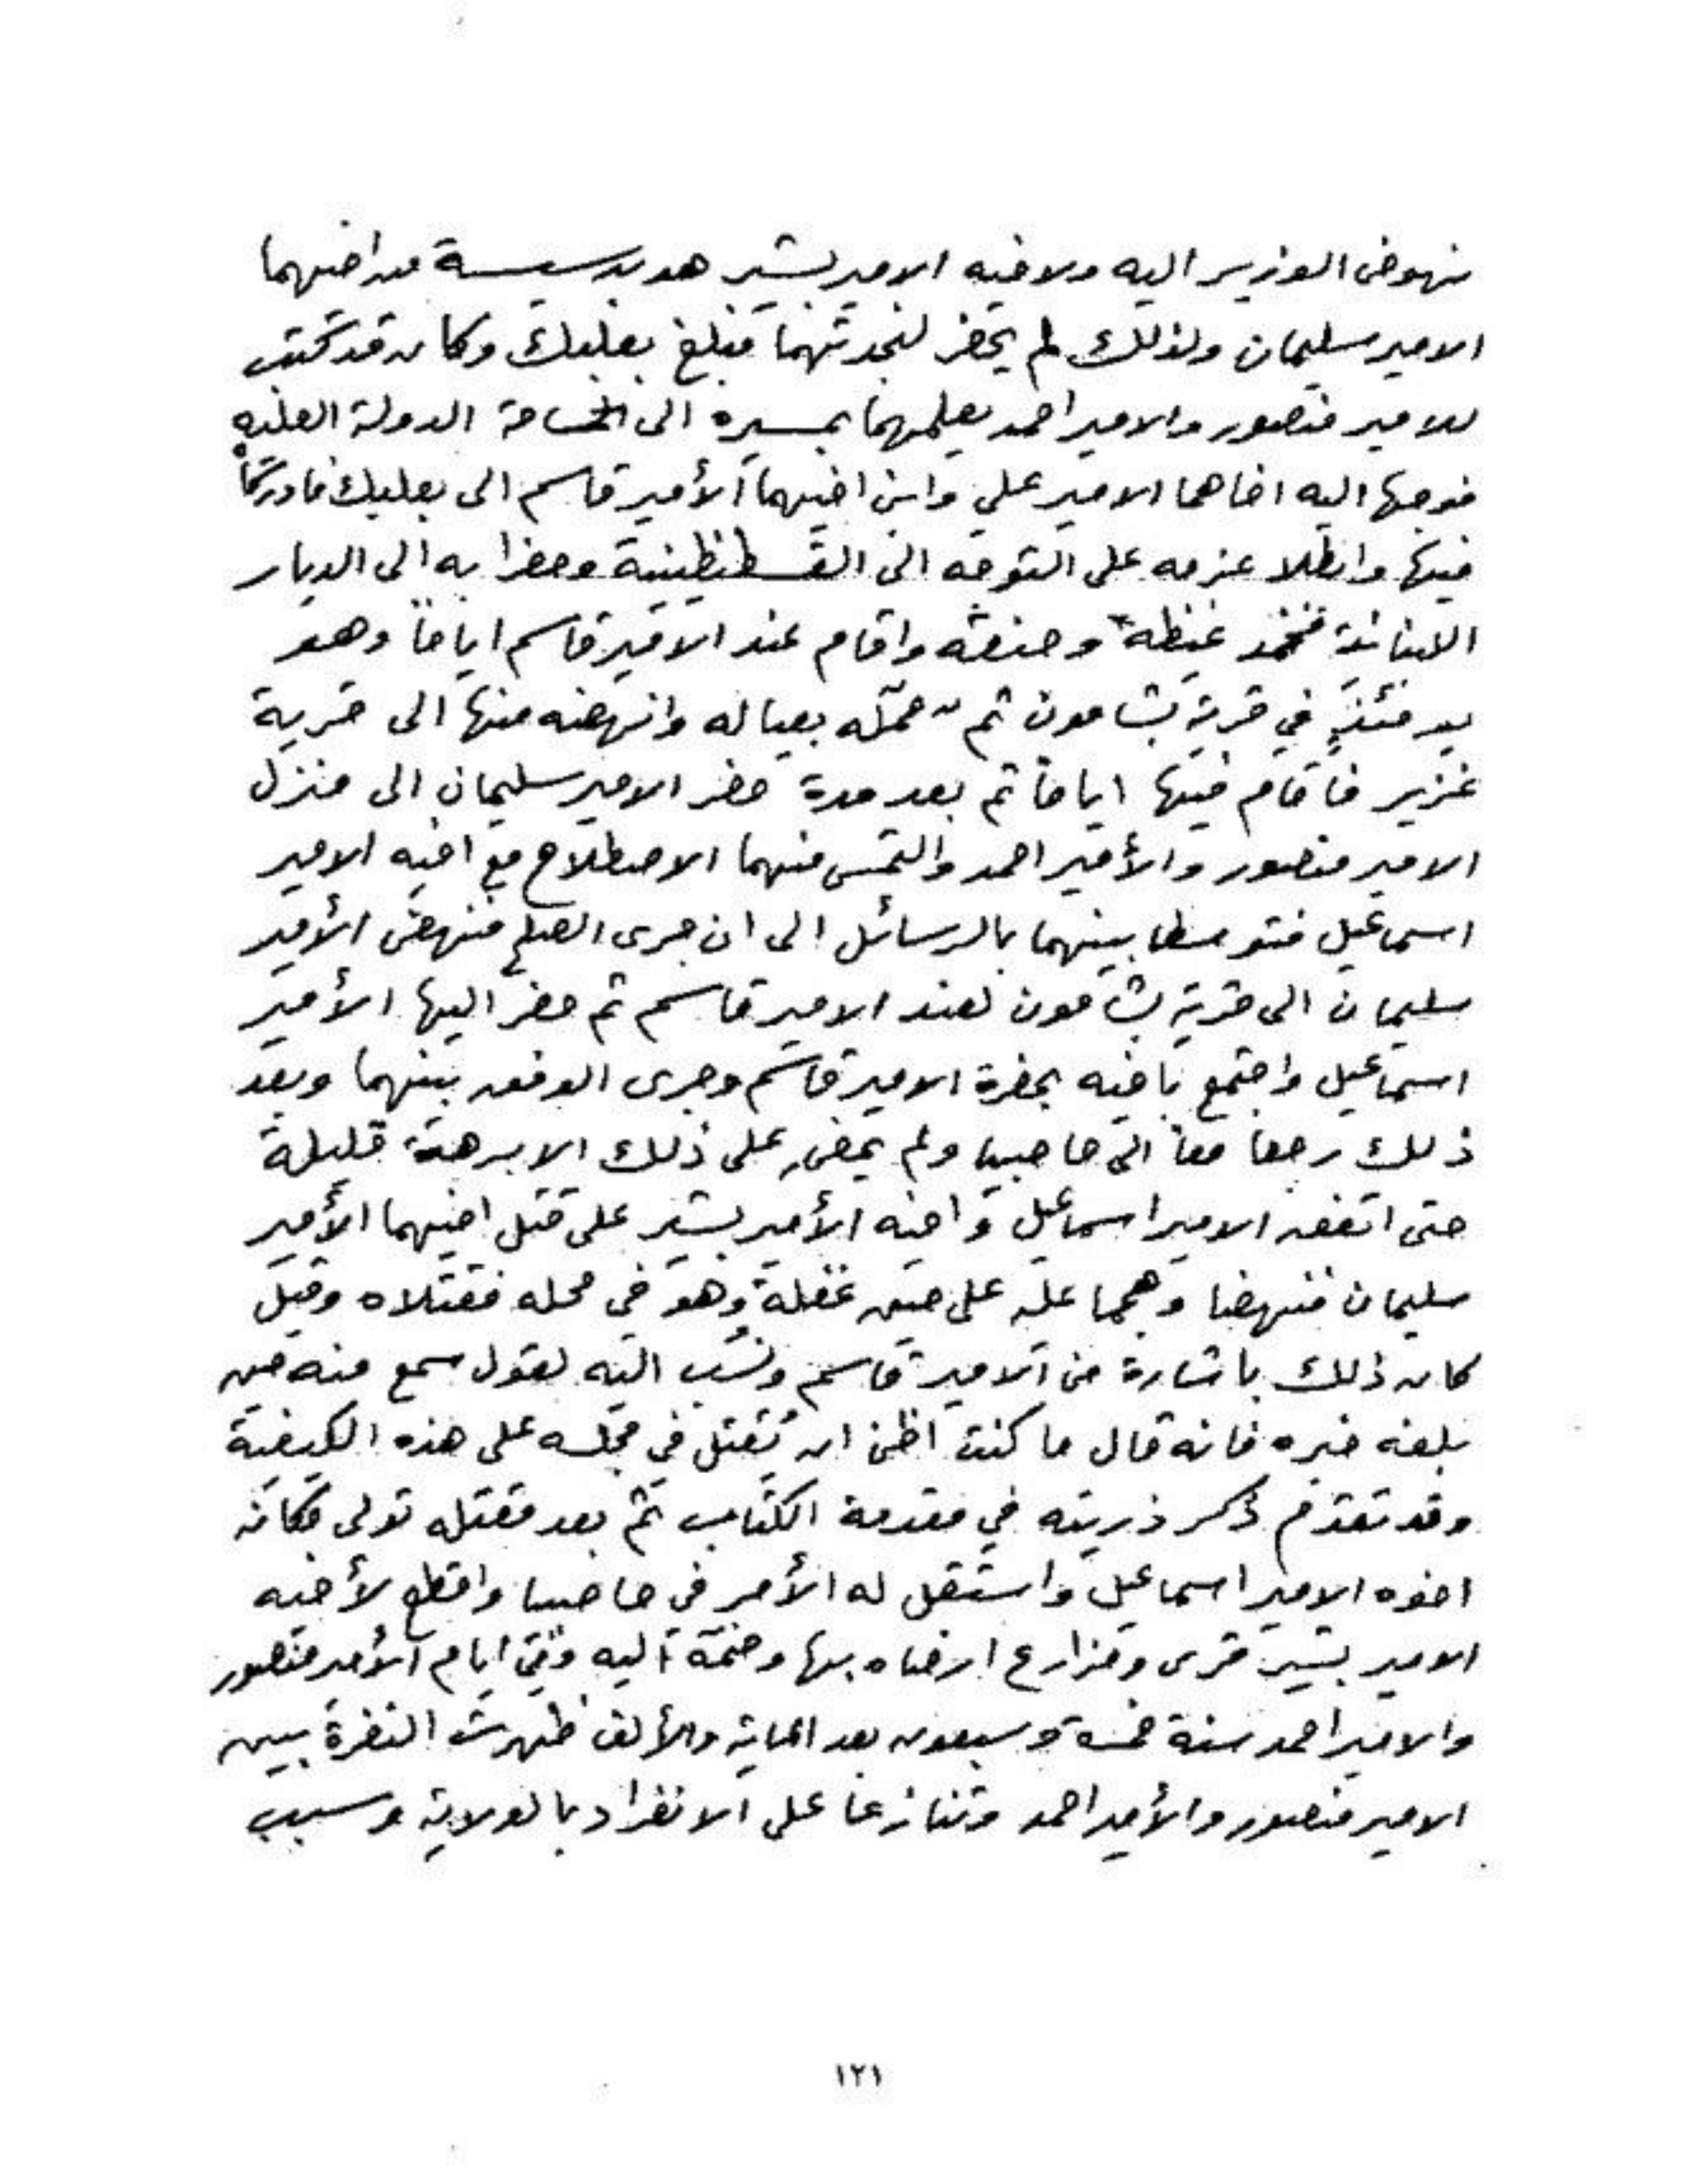 نهوض الوزير اليه ولاخيه الامير بشير هو بدسيسة من اخيهما
الامير سليمان ولذلك لم يحضر لنجدتهما فبلغ بعلبك وكان قد كتب
للامير منصور والامير احمد يعلمهما بمسيره الى الدولة العليه
فوجها اليه اخاهما الامير علي وابن اخيهما الأمير قاسم الى بعلبك فادركاه
فيها وابطلا عزمه على التوجه الى القسطنطينية وحضرا به الى الديار
اللبنانية فخمد غيظه وحنقه واقام عند الامير قاسم اياماً وهو
يومئذٍ في قرية بشامون ثم بعياله وانهضه منها الى قرية
غزير فأقام فيها اياماً ثم بعد مدة حضر الامير سليمان الى منزل
الامير منصور والأمير احمد والتمس منهما الاصطلاح مع اخيه الامير
اسماعيل فتوسطا بينهما بالرسائل الى ان جرى الصلح فنهض الأمير
سليمان الى قرية بشامون لعند الامير قاسم ثم حضر اليها الأمير
اسماعيل واجتمع باخيه بحضرة الامير قاسم وجرى الوفق بينهما وبعد
ذلك رجعا معاً الى حاصبيا ولم يمضِ على ذلك الا برهة قليلة
حتى اتفق الامير اسماعيل واخيه الأمير بشير على قتل اخيهما الأمير
سليمان فنهضا وهجما عليه على حين غفلة وهو في محله فقتلاه وقيل
كان ذلك باشارة من الامير قاسم ونسب اليه لقول سمع منه حين
بلغه خبره فانه قال ما كنت اظن ان يُقتل في مجلسه على هذه الكيفية
وقد تقدم ذكر ذريته في مقدمة الكتاب ثم بعد مقتله تولى مكانه
اخوه الامير اسماعيل واستقل له الأمر في حاصبيا واقطع لأخيه
الامير بشير قرى ومزارع ارضاه بها وضمه اليه وفي ايام الأمير منصور
والامير احمد سنة خمسة وسبعون بعد الماية والألف ظهرت النفرة بين
الامير منصور والأمير احمد وتنازعا على الانفراد بالولاية وسبب
١٢١